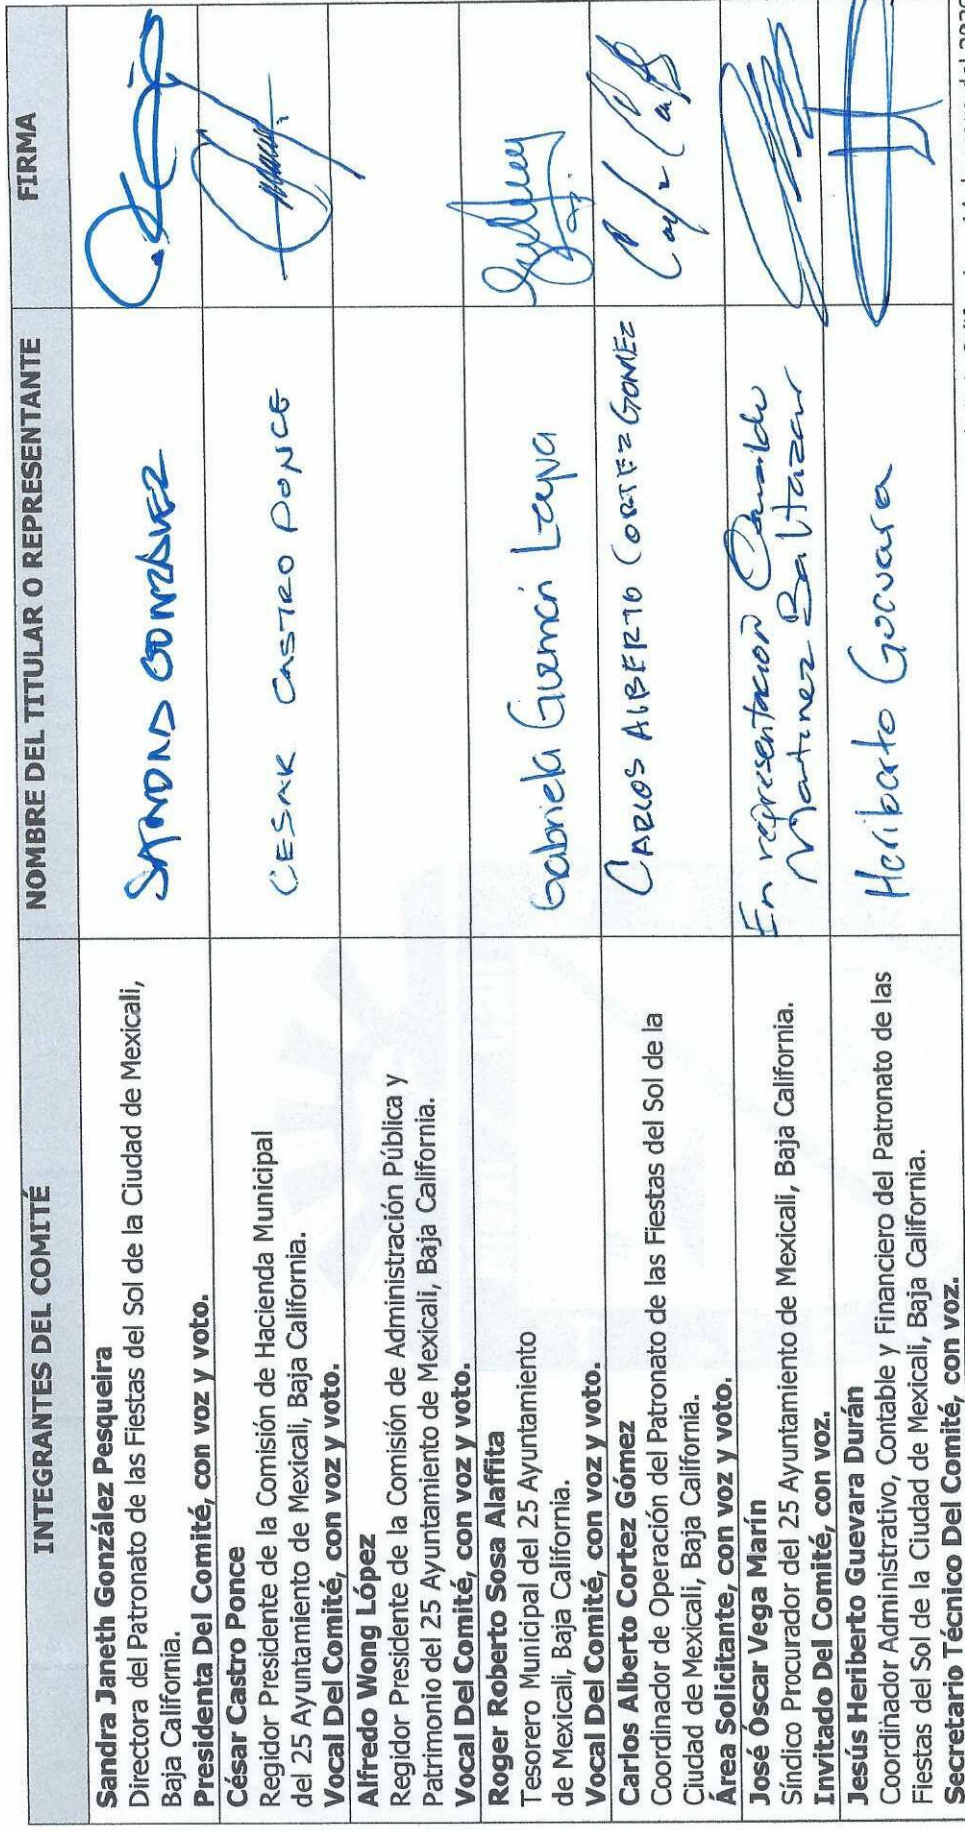 INTEGRANTES DEL COMITÉ
NOMBRE DEL TITULAR O REPRESENTANTE
FIRMA
Sandra Janeth González Pesqueira
Directora del Patronato de las Fiestas del Sol de la Ciudad de Mexicali,
Baja California.
Presidenta Del Comité, con voz y voto.
SANDRA GONZALEZ
César Castro Ponce
Regidor Presidente de la Comisión de Hacienda Municipal
del 25 Ayuntamiento de Mexicali, Baja California.
Vocal Del Comité, con voz y voto.
CESAR CASTRO PONCE
Alfredo Wong López
Regidor Presidente de la Comisión de Administración Pública y
Patrimonio del 25 Ayuntamiento de Mexicali, Baja California.
Vocal Del Comité, con voz y voto.
Roger Roberto Sosa Alaffita
Tesorero Municipal del 25 Ayuntamiento
de Mexicali, Baja California.
Vocal Del Comité, con voz y voto.
Gabriela
Carlos Alberto Cortez Gómez
Coordinador de Operación del Patronato de las Fiestas del Sol de la
Ciudad de Mexicali, Baja California.
Área Solicitante, con voz y voto.
CARLOS ALBERTO CORTEZ GOMEZ
José Óscar Vega Marín
Síndico Procurador del 25 Ayuntamiento de Mexicali, Baja California.
Invitado Del Comité, con voz.
En representacion
Martinez Baltazar
Jesús Heriberto Guevara Durán
Coordinador Administrativo, Contable y Financiero del Patronato de las
Fiestas del Sol de la Ciudad de Mexicali, Baja California.
Secretario Técnico Del Comité, con voz.
Heriberto Guevara